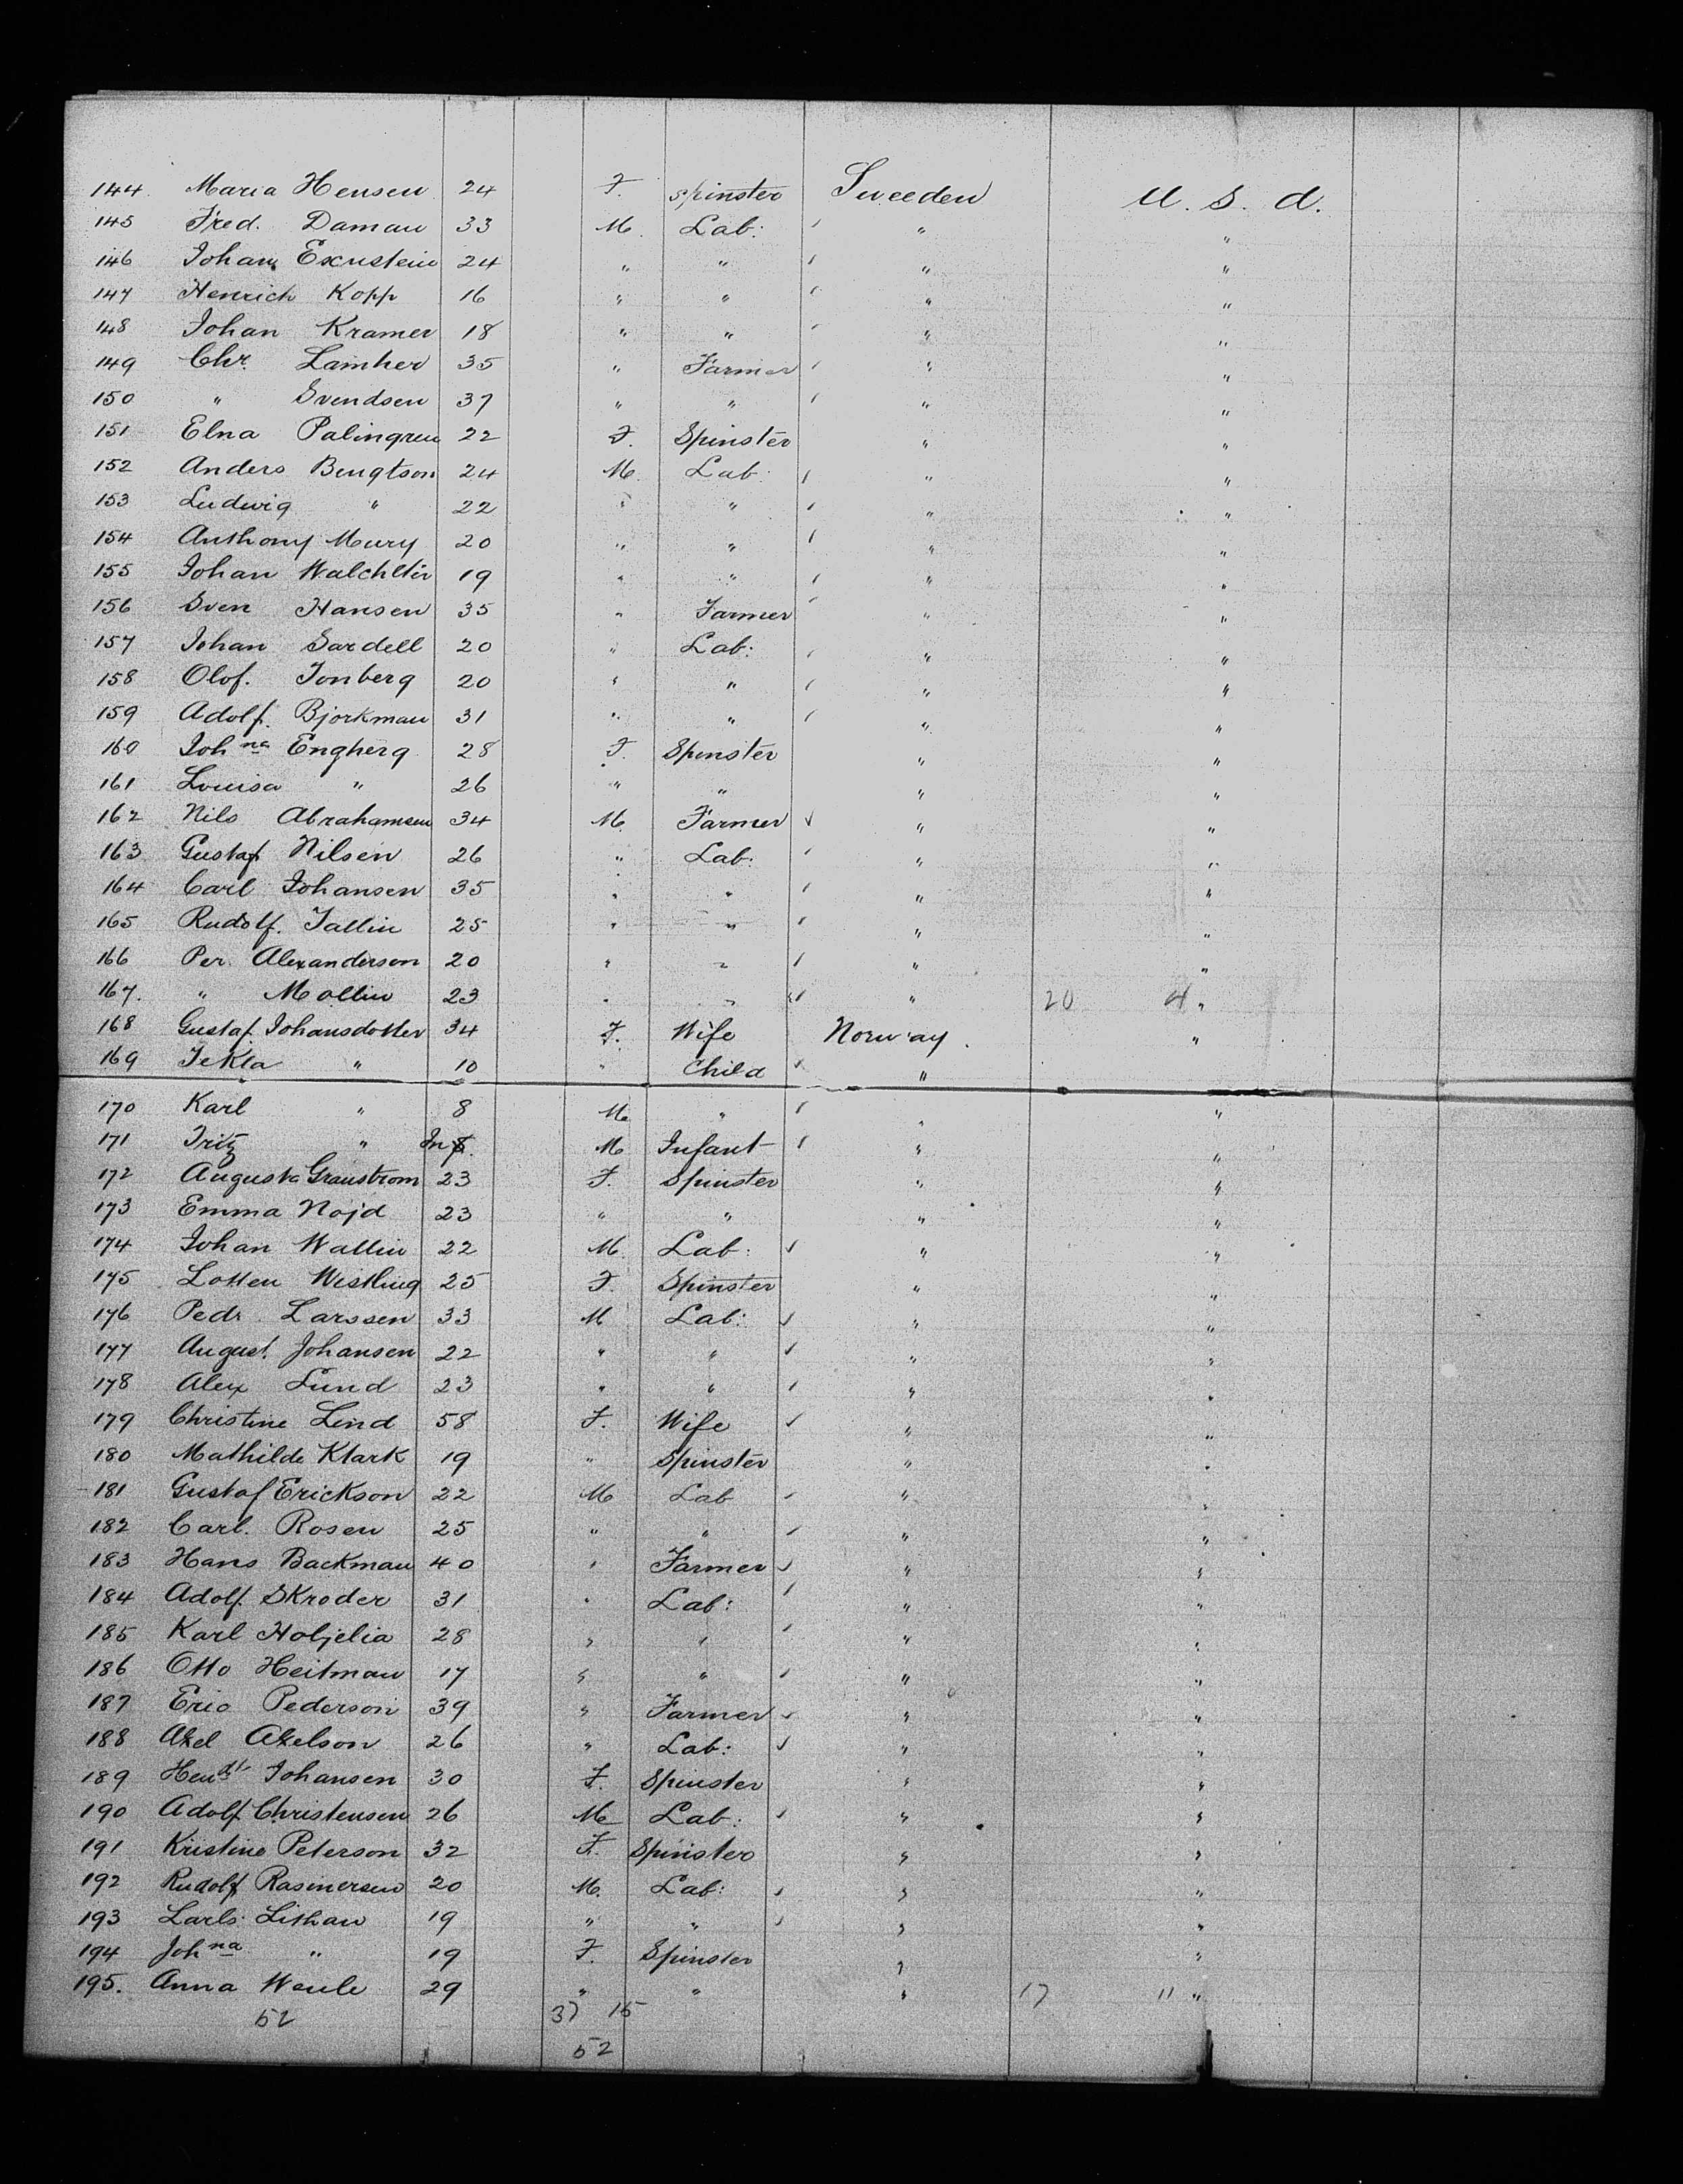 144. Maria Hensen 24 F. Spinster Sweeden U. S. A.
145 Fred. Daman 33 M. Lab: " "
146 Johan Exenstein 24 " " " "
147 Henrich Kopp 16 " " " "
148 Johan Kramer 18 " " " "
149 Chr. Lamher 35 " Farmer " "
150 " Svendsen 37 " " " "
151 Elna Palingren 22 F. Spinster " "
152 Anders Bengtson 24 M. Lab. " "
153 Ludwig " 22 " " " "
154 Anthony Mury 20 " " " "
155 Johan 19 " " " "
156 Sven Hansen 35 " Farmer " "
157 Johan Sardell 20 " Lab: " "
158 Olof. Tonberg 20 " " " "
159 Adolf. Bjorkman 31 " " " "
160 Johna Engberg 28 F. Spinster " "
161 Louisa " 26 " " " "
162 Nils Abrahamsen 34 M. Farmer " "
163 Gustaf Nilsen 26 " Lab: " "
164 Carl Johansen 35 " " " "
165 Rudolf. Tallin 25 " " " "
166 Per. Alexanderson 20 " " " "
167. " Mollin 23 " " " 20 4 "
168 Gustaf. Johansdotter 34 F. Wife Norway. "
169 Tekla " 10 " Child " "
170 Karl " 8 M " " "
171 Fritz " Inf. M Infant " "
172 Augusta Granstrom 23 F. Spinster " "
173 Emma Nojd 23 " " " "
174 Johan Wallin 22 M. Lab: " "
175 Lotten Westling 25 F. Spinster " "
176 Pedr. Larssen 33 M Lab: " "
177 August. Johansen 22 " " " "
178 Alex Lund 23 " " " "
179 Christine Lind 58 F. Wife " "
180 Mathilde Klark 19 " Spinster " "
181 Gustaf Erickson 22 M Lab " "
182 Carl. Rosen 25 " " " "
183 Hans Backman 40 " Farmer " "
184 Adolf. Skroder 31 " Lab: " "
185 Karl Holjelia 28 " " " "
186 Otto Heitman 17 " " " "
187 Eric Pederson 39 " Farmer " "
188 Akel Akelson 26 " Lab: " "
189 Johansen 30 F. Spinster " "
190 Adolf. Christensen 26 M Lab: " "
191 Kristine Peterson 32 F. Spinster " "
192 Rudolf Rasmersen 20 M. Lab: " "
193 Larls. Lithan 19 " " " "
194 Johna " 19 F. Spinster " "
195. Anna Weule 29 " " " 17 11 "
52 37 15
52